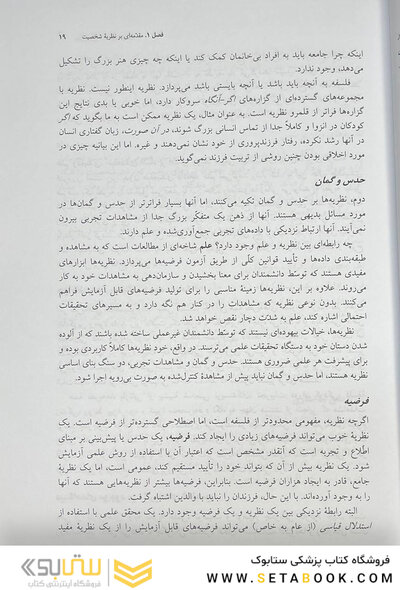 فصل ۱. مقدمه‌ای بر نظریهٔ شخصیت ۱۹
اینکه چرا جامعه باید به افراد بی‌خانمان کمک کند یا اینکه چه چیزی هنر بزرگ را تشکیل
می‌دهد، وجود ندارد.
فلسفه به آنچه باید باشد یا آنچه بایستی باشد می‌پردازد. نظریه اینطور نیست. نظریه با
مجموعه‌های گسترده‌ای از گزاره‌های اگر-آنگاه سروکار دارد، اما خوبی یا بدی نتایج این
گزاره‌ها فراتر از قلمرو نظریه است. به عنوان مثال، یک نظریه ممکن است به ما بگوید که اگر
کودکان در انزوا و کاملاً جدا از تماس انسانی بزرگ شوند، در آن صورت، زبان گفتاری انسان
در آنها رشد نکرده، رفتار فرزندپروری از خود نشان نمی‌دهند و غیره. اما این بیانیه چیزی در
مورد اخلاقی بودن چنین روشی از تربیت فرزند نمی‌گوید.
حدس و گمان
دوم، نظریه‌ها بر حدس و گمان تکیه می‌کنند، اما آنها بسیار فراتر از حدس و گمان‌ها در
مورد مسائل بدیهی هستند. آنها از ذهن یک متفکّر بزرگ جدا از مشاهدات تجربی بیرون
نمی‌آیند. آنها ارتباط نزدیکی با داده‌های تجربی جمع‌آوری‌شده و علم دارند.
چه رابطه‌ای بین نظریه و علم وجود دارد؟ علم شاخه‌ای از مطالعات است که به مشاهده و
طبقه‌بندی داده‌ها و تأیید قوانین کلّی از طریق آزمون فرضیه‌ها می‌پردازد. نظریه‌ها ابزارهای
مفیدی هستند که توسّط دانشمندان برای معنا بخشیدن و سازمان‌دهی به مشاهدات خود به کار
می‌روند. علاوه بر این، نظریه‌ها زمینهٔ مناسبی را برای تولید فرضیه‌های قابل آزمایش فراهم
می‌کنند. بدون نوعی نظریه که مشاهدات را در کنار هم نگه دارد و به مسیرهای تحقیقات
احتمالی اشاره کند، علم به شدّت دچار نقص خواهد شد.
نظریه‌ها، خیالات بیهوده‌ای نیستند که توسّط دانشمندان غیرعملی ساخته شده باشند که از آلوده
شدن دستان خود به دستگاه تحقیقات علمی می‌ترسند. در واقع، خود نظریه‌ها کاملاً کاربردی بوده و
برای پیشرفت هر علمی ضروری هستند. حدس و گمان و مشاهدات تجربی، دو سنگ بنای اساسی
نظریه هستند، اما حدس و گمان نباید پیش از مشاهدهٔ کنترل‌شده به صورت بی‌رویه اجرا شود.
فرضیه
اگرچه نظریه، مفهومی محدودتر از فلسفه است، اما اصطلاحی گسترده‌تر از فرضیه است. یک
نظریهٔ خوب می‌تواند فرضیه‌های زیادی را ایجاد کند. فرضیه، یک حدس یا پیش‌بینی بر مبنای
اطلاع و تجربه است که آنقدر مشخص است که اعتبار آن با استفاده از روش علمی آزمایش
شود. یک نظریه بیش از آن که بتواند خود را تأیید مستقیم کند، عمومی است، اما یک نظریهٔ
جامع، قادر به ایجاد هزاران فرضیه است. بنابراین، فرضیه‌ها بیشتر از نظریه‌هایی هستند که آنها
را به وجود آورده‌اند. با این حال، فرزندان را نباید با والدین اشتباه گرفت.
البته رابطهٔ نزدیکی بین یک نظریه و یک فرضیه وجود دارد. یک محقق علمی با استفاده از
استدلال قیاسی (از عام به خاص) می‌تواند فرضیه‌های قابل آزمایش را از یک نظریهٔ مفید
فروشگاه کتاب پزشکی ستابوک
WWW.SETABOOK.COM
ستابوک
فروشگاه اینترنتی کتاب